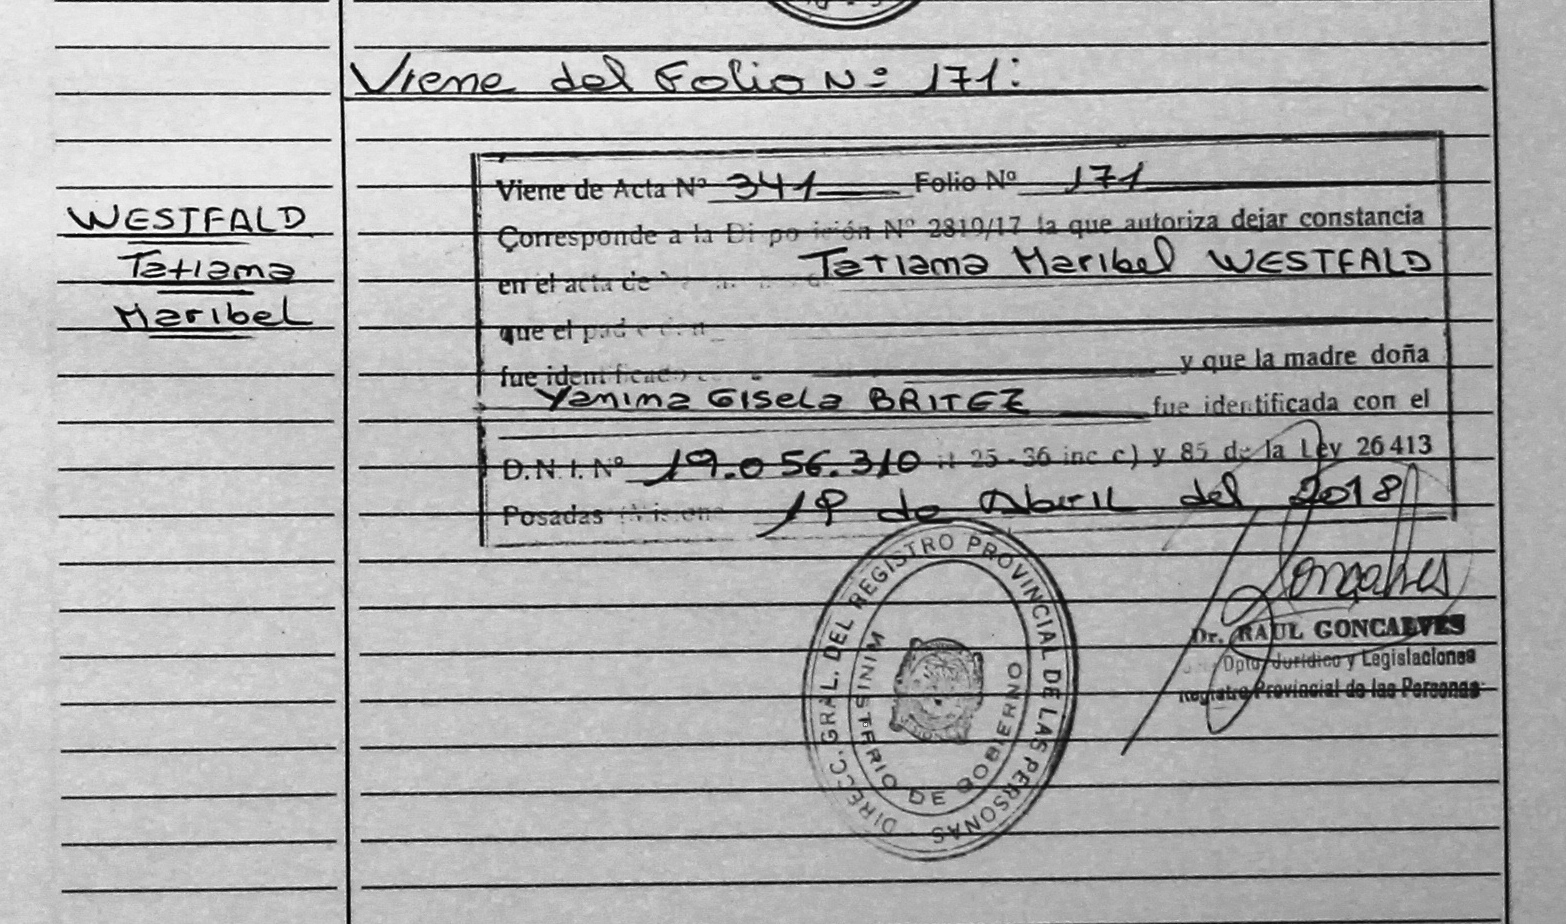 Viene del Folio Nº 171:
WESTFALD
Tatiana
Maribel
Viene de Acta Nº 341 Folio Nº 171
Corresponde a la Di po ición Nº 2819/17 la que autoriza dejar constancia
en el acta de Tatiana Maribel WESTFALD
que el
fue y que la madre doña
Yanina Gisela BRITEZ fue identificada con el
D.N.I. Nº 19.056.310 25-36 inc c) y 85 de la Ley 26 413
Posadas de Abril del 2018
DIRECC. GRAL. DEL REGISTRO PROVINCIAL DE LAS PERSONAS
MINISTERIO DE GOBIERNO
Dr. RAUL GONCALVES
Dpto. Jurídico y Legislaciones
Registro Provincial de las Personas